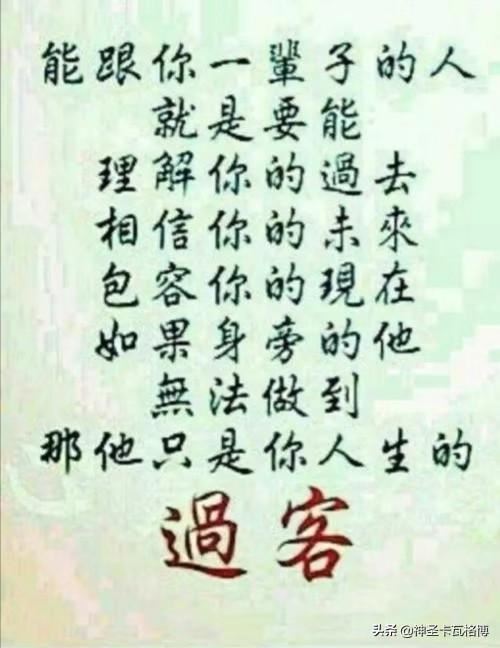 能跟你一輩子的人
就是要能
理解你的過去
相信你的未來
包容你的現在
如果身旁的他
無法做到
那他只是你人生的
過客
头条 @神圣卡瓦格博